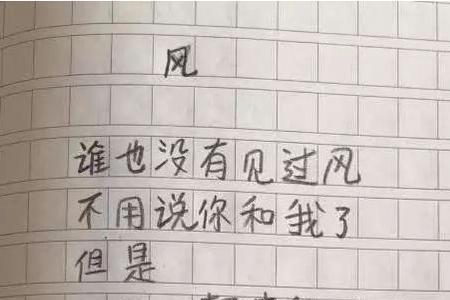 风
谁也没有见过风
不用说你和我了
但是